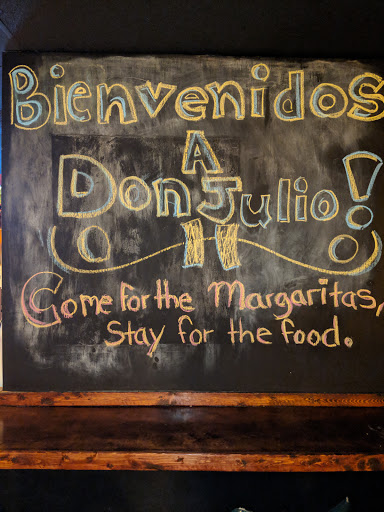 Bienvenidos
A
Don Julio!
Come for the Margaritas,
Stay for the food.